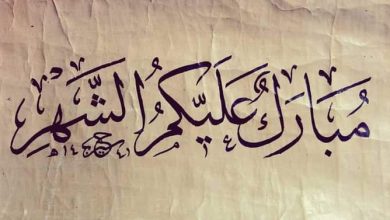 مُبَارَكٌ عَلَيكُمُ الشَّهرِ